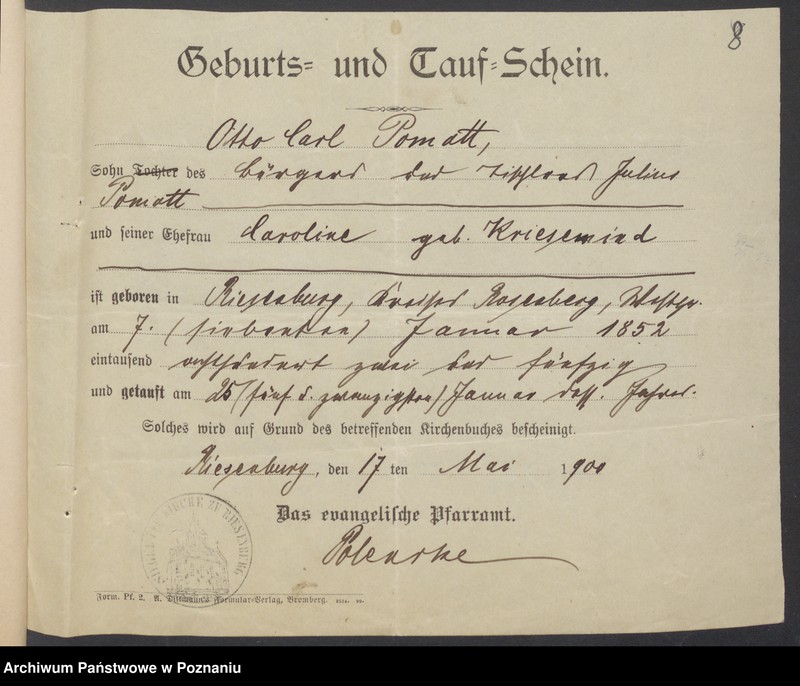 8
Geburts= und Tauf=Schein.
Otto Carl Pomatt,
Sohn Tochter des Bürgers und Tischlers Julius
Pomatt
und seiner Ehefrau Caroline geb. Kriesemind
ist geboren in Riesenburg, Kreises Rosenberg, Westpr.
am 7. (siebenten) Januar 1852
eintausend achthundert zwei und fünfzig
und getauft am 25 (fünf u. zwanzigsten) Januar dess. Jahres.
Solches wird auf Grund des betreffenden Kirchenbuches bescheinigt.
Riesenburg, den 17 ten Mai 1900
Das evangelische Pfarramt.
KIRCHE ZU RIESENBURG
Form. Pf. 2. A. Dittmann's Formular-Verlag, Bromberg.
Archiwum Państwowe w Poznaniu